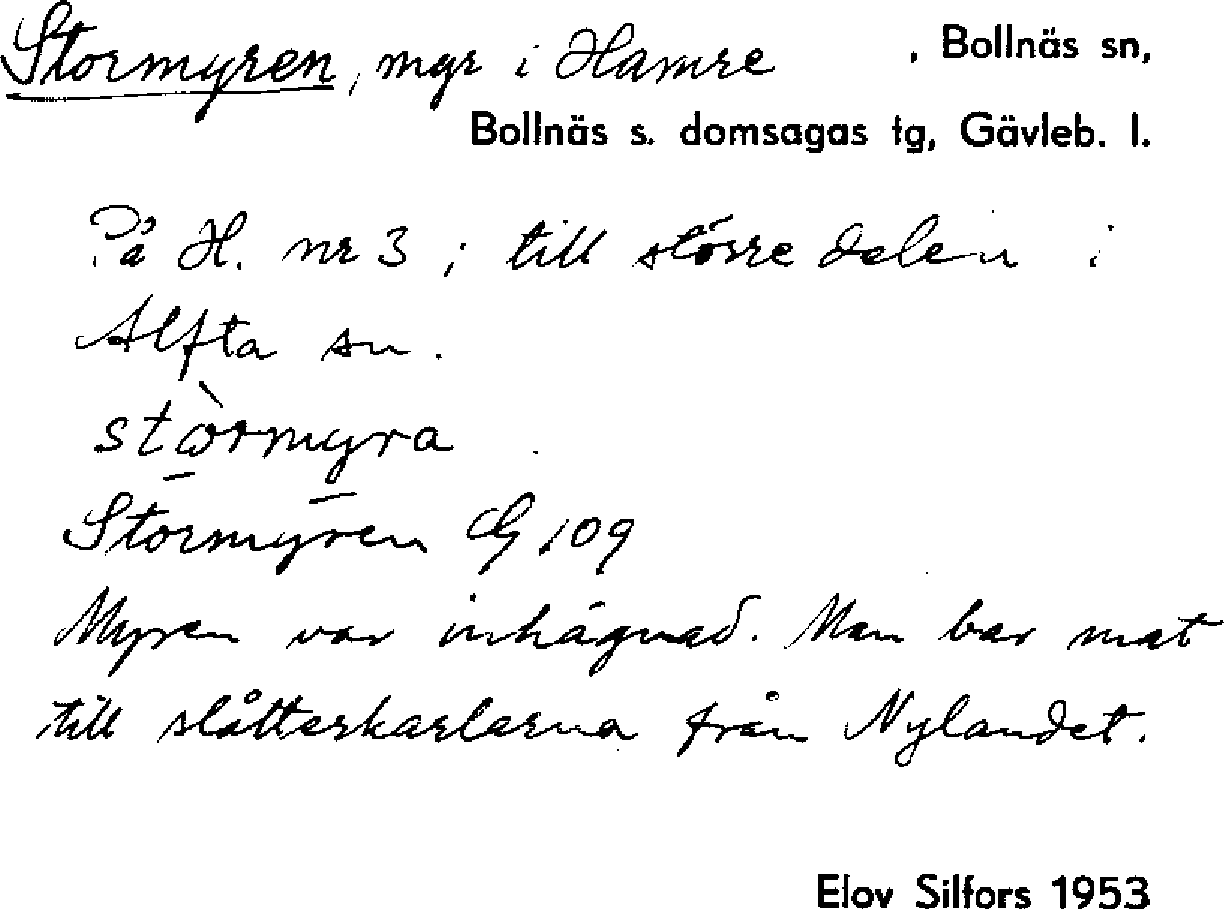 Stormyren, myr i Hamre , Bollnäs sn,
Bollnäs s. domsagas tg, Gävleb. l.
På H. nr 3 ; till större delen i
Alfta sn.
stòrmyra
Stormyren G 109
Myren var inhägnad. Man bar mat
till slåtterkarlarna från Nylandet.
Elov Silfors 1953